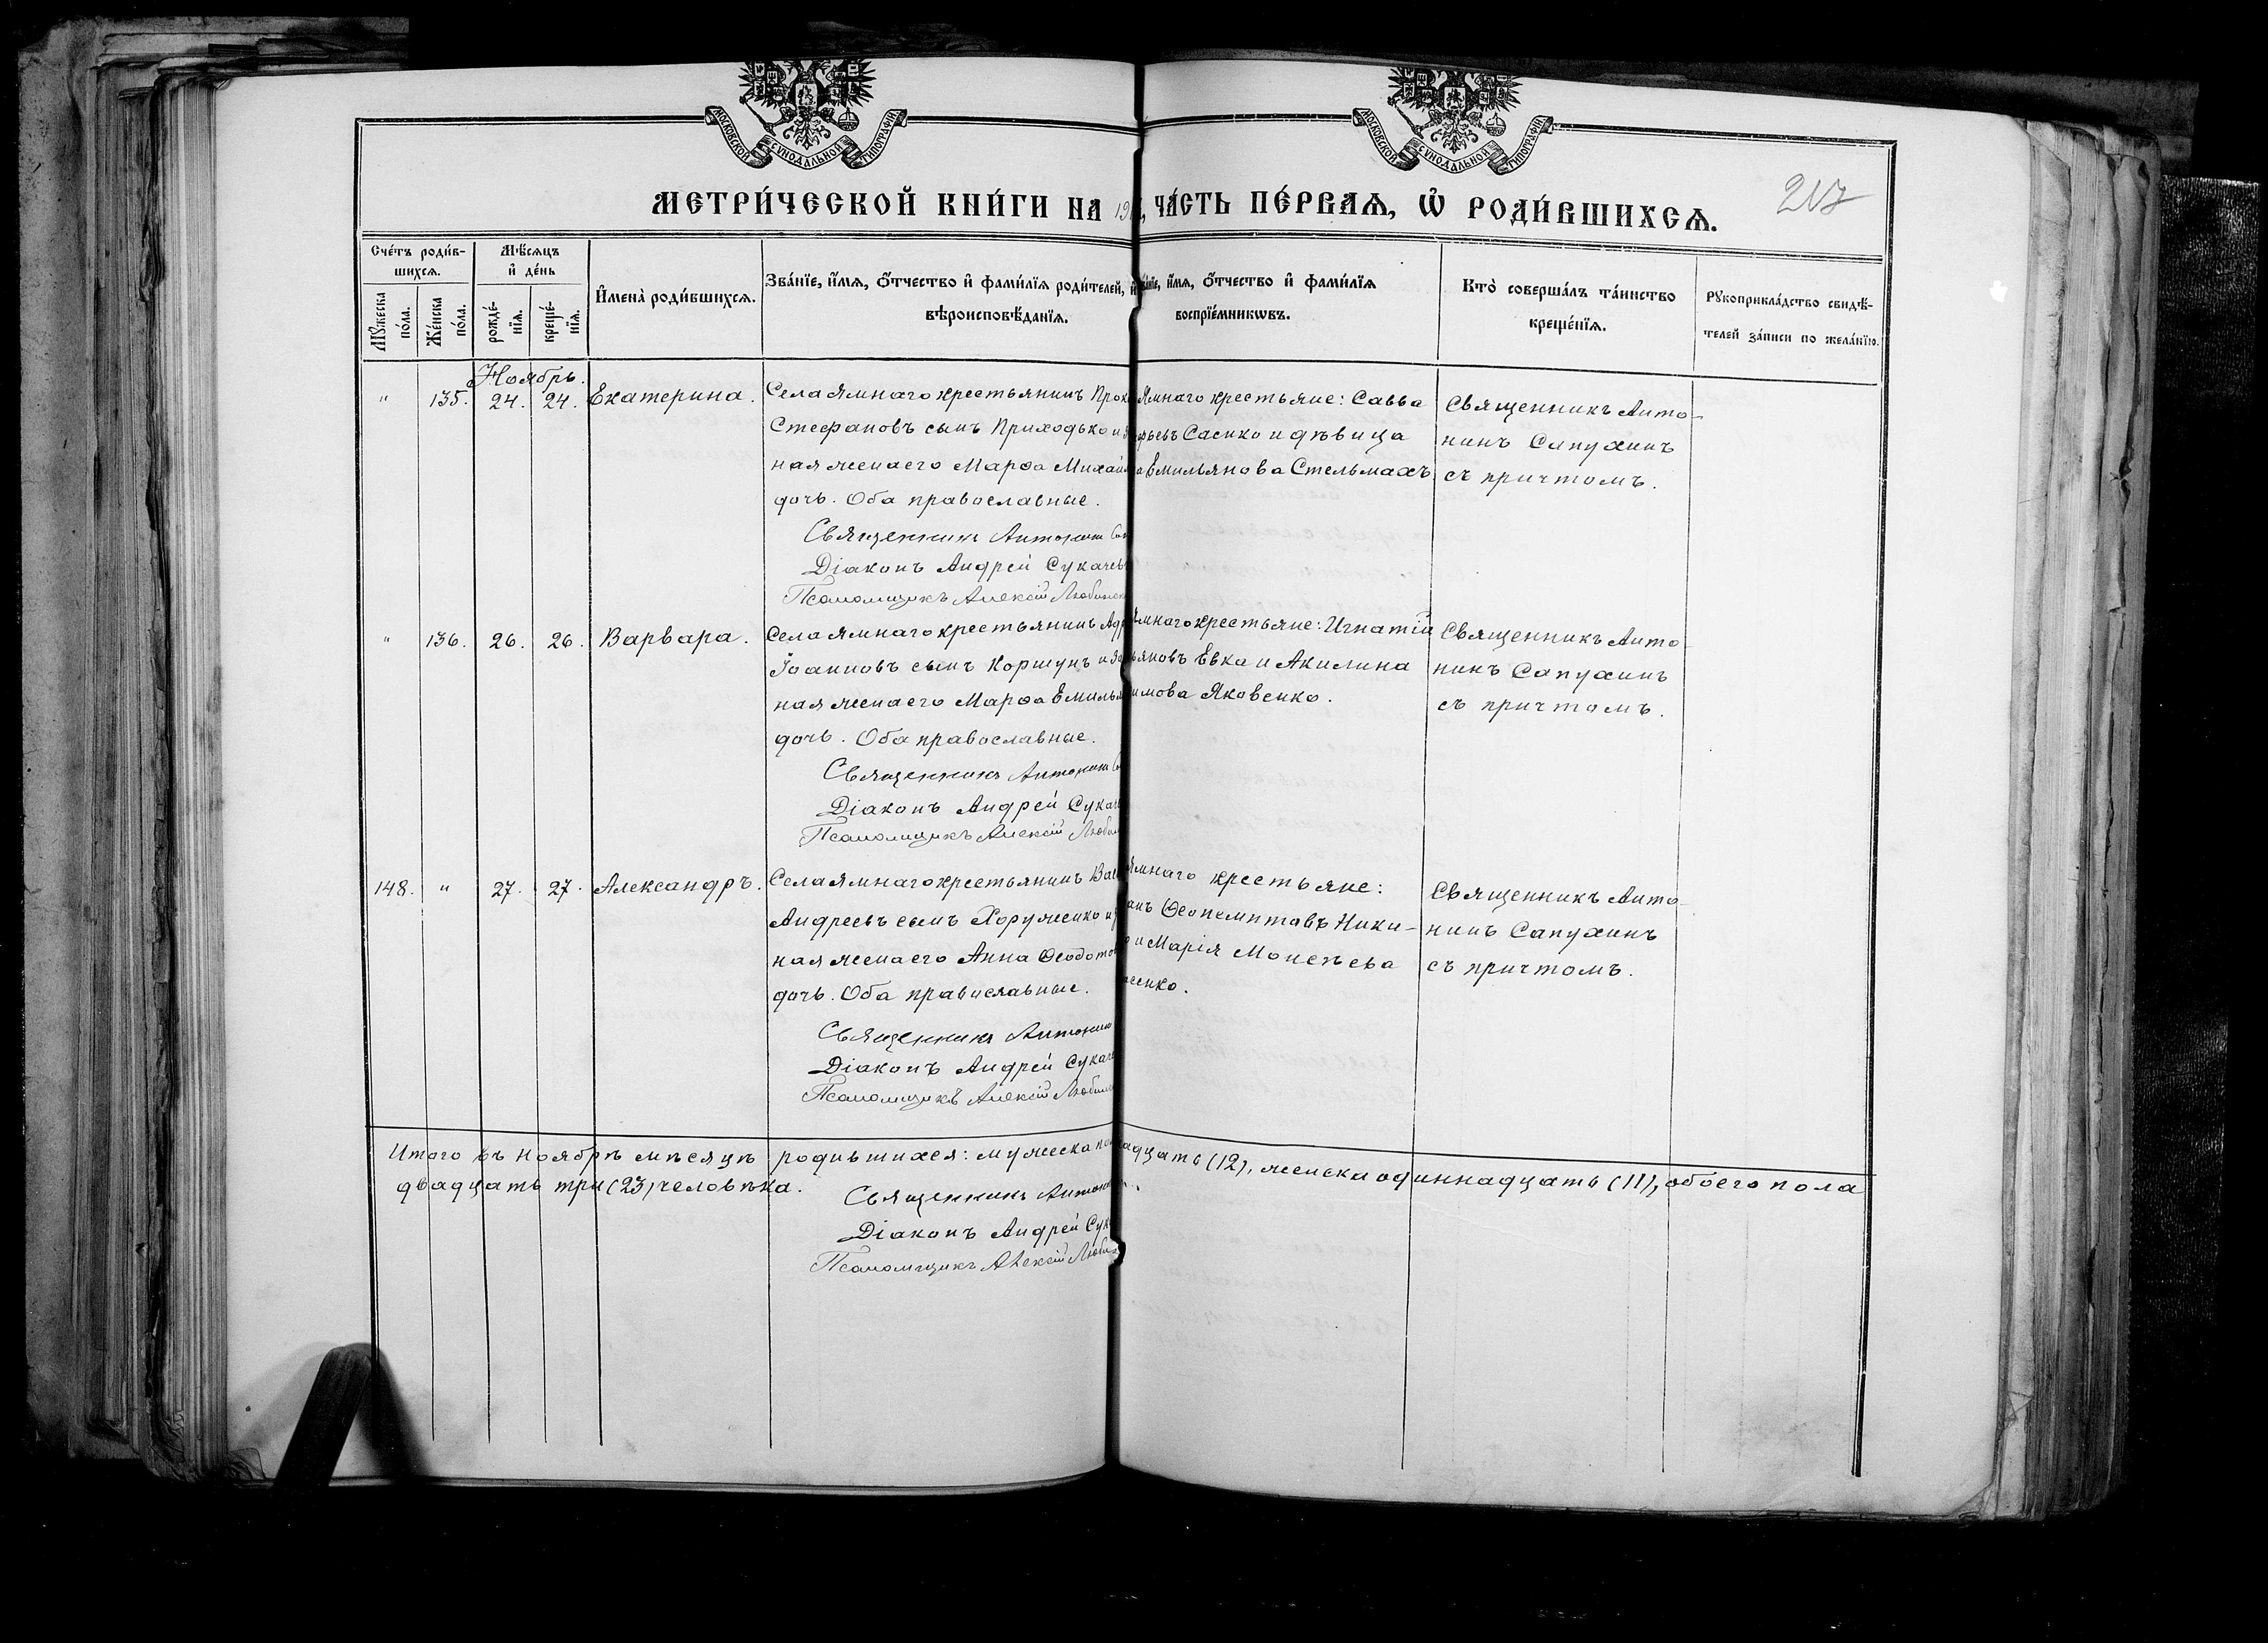 МОСКОВСКОЙ СУНОДАЛЬНОЙ ТИПОГРАФІИ
МОСКОВСКОЙ СУНОДАЛЬНОЙ ТИПОГРАФІИ
МЕТРИ́ЧЕСКОЙ КНИ́ГИ НА 19 , ЧА́СТЬ ПЕ́РВАѦ, Ѡ҆ РОДИ́ВШИХСѦ.
Сче́тъ роди́в-
шихсѧ.
Мꙋ́жеска по́ла.
Же́нска по́ла.
Мѣ́сѧцъ
и҆ де́нь
рожде́-нїѧ.
креще́-нїѧ.
И҆мена̀ роди́вшихсѧ.
Зва́нїе, и҆́мѧ, о҆́тчество и҆ фами́лїѧ роди́телей, и҆
вѣроисповѣ́данїѧ.
и҆́мѧ, о҆́тчество и҆ фами́лїѧ
воспрїе́мникѡвъ.
Кто̀ соверша́лъ та́инство
креще́нїѧ.
Рꙋкоприкла́дство свидѣ́-
телей за́писи по жела́нїю.
Ноябрь.
" 135. 24. 24. Екатерина.
Села Ямнаго крестьянинъ Прох
Стефановъ сынъ Приходько и з
ная жена его Марѳа Михайл
дочь. Оба православные.
Священникъ Антонинъ Са
Діаконъ Андрей Сукачевъ
Псаломщикъ Алексій Любин
Ямнаго крестьяне: Савва
фьевъ Сасико и дѣвица
а Емильянова Стельмахъ
Священникъ Анто-
нинъ Сапухинъ
съ причтомъ.
" 136. 26. 26. Варвара.
Села Ямнаго крестьянинъ Адр
Іоанновъ сынъ Коршунъ и за
ная жена его Марѳа Емилья
дочь. Оба православные.
Священникъ Антонинъ Са
Діаконъ Андрей Сукаче
Псаломщикъ Алексій Любин
Ямнаго крестьяне: Игнатій
ьяновъ Евка и Акилина
имова Яковенко.
Священникъ Анто
нинъ Сапухинъ
съ причтомъ.
148. " 27. 27. Александръ.
Села Ямнаго крестьянинъ Васи
Андреевъ сынъ Хоруженко и з
ная жена его Анна Ѳеодотов
дочь. Оба православные.
Священникъ Антонинъ
Діаконъ Андрей Сукаче
Псаломщикъ Алексій Любин
Ямнаго крестьяне:
анъ Ѳеопемптовъ Ники-
о и Марія Моисеева
сенко.
Священникъ Анто-
нинъ Сапухинъ
съ причтомъ.
Итого въ Ноябрѣ мѣсяцѣ родившихся: мужеска пол адцать (12), женска одиннадцать (11), обоего пола
двадцать три (23) человѣка.
Священникъ Антонин
Діаконъ Андрей Сука
Псаломщикъ Алексій Любин